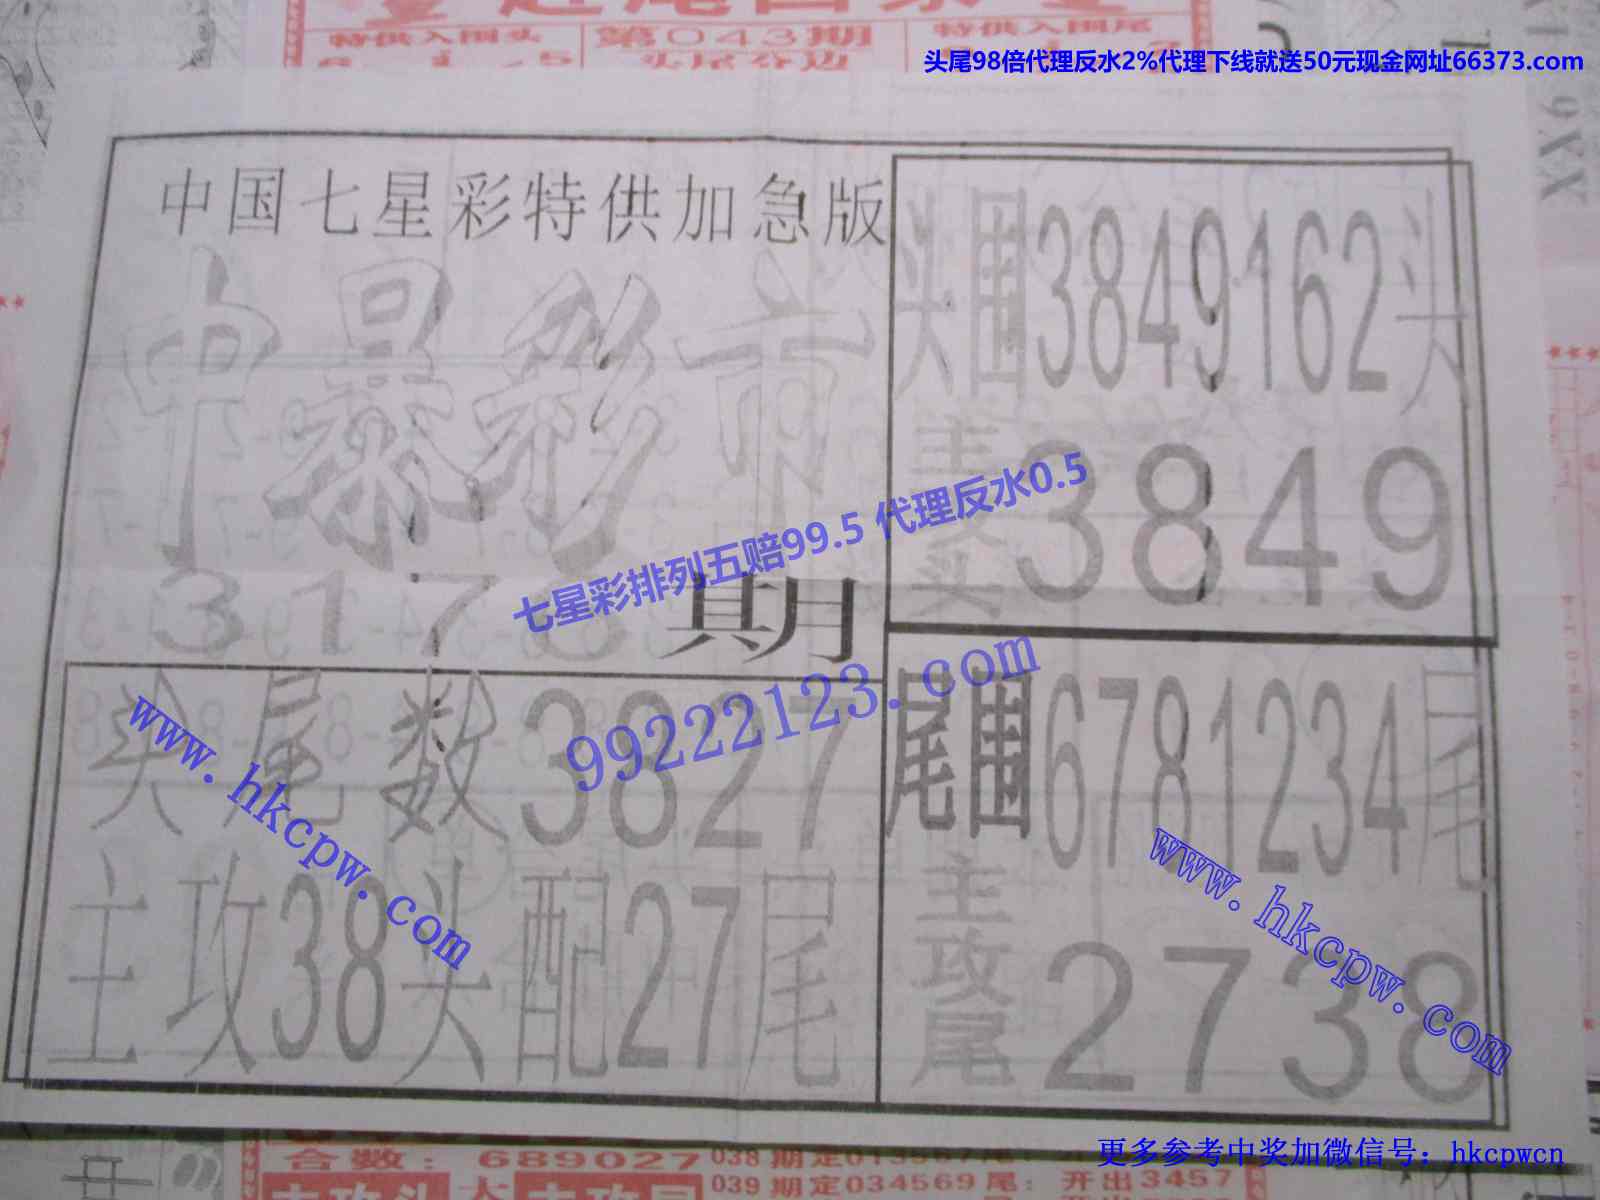 特供入围头
第043期
特供入围尾
头尾分边
头尾98倍代理反水2%代理下线就送50元现金网址66373.com
9XX
中国七星彩特供加急版
头围3849162头
主攻头
3849
七星彩排列五赔99.5 代理反水0.5
期
99222123.com
头尾数3827
www.hkcpw.com
主攻38头配27尾
尾围6781234尾
主攻尾
2738
www.hkcpw.com
更多参考中奖加微信号：hkcpwcn
合数：689027
039期定034569尾：开出3457